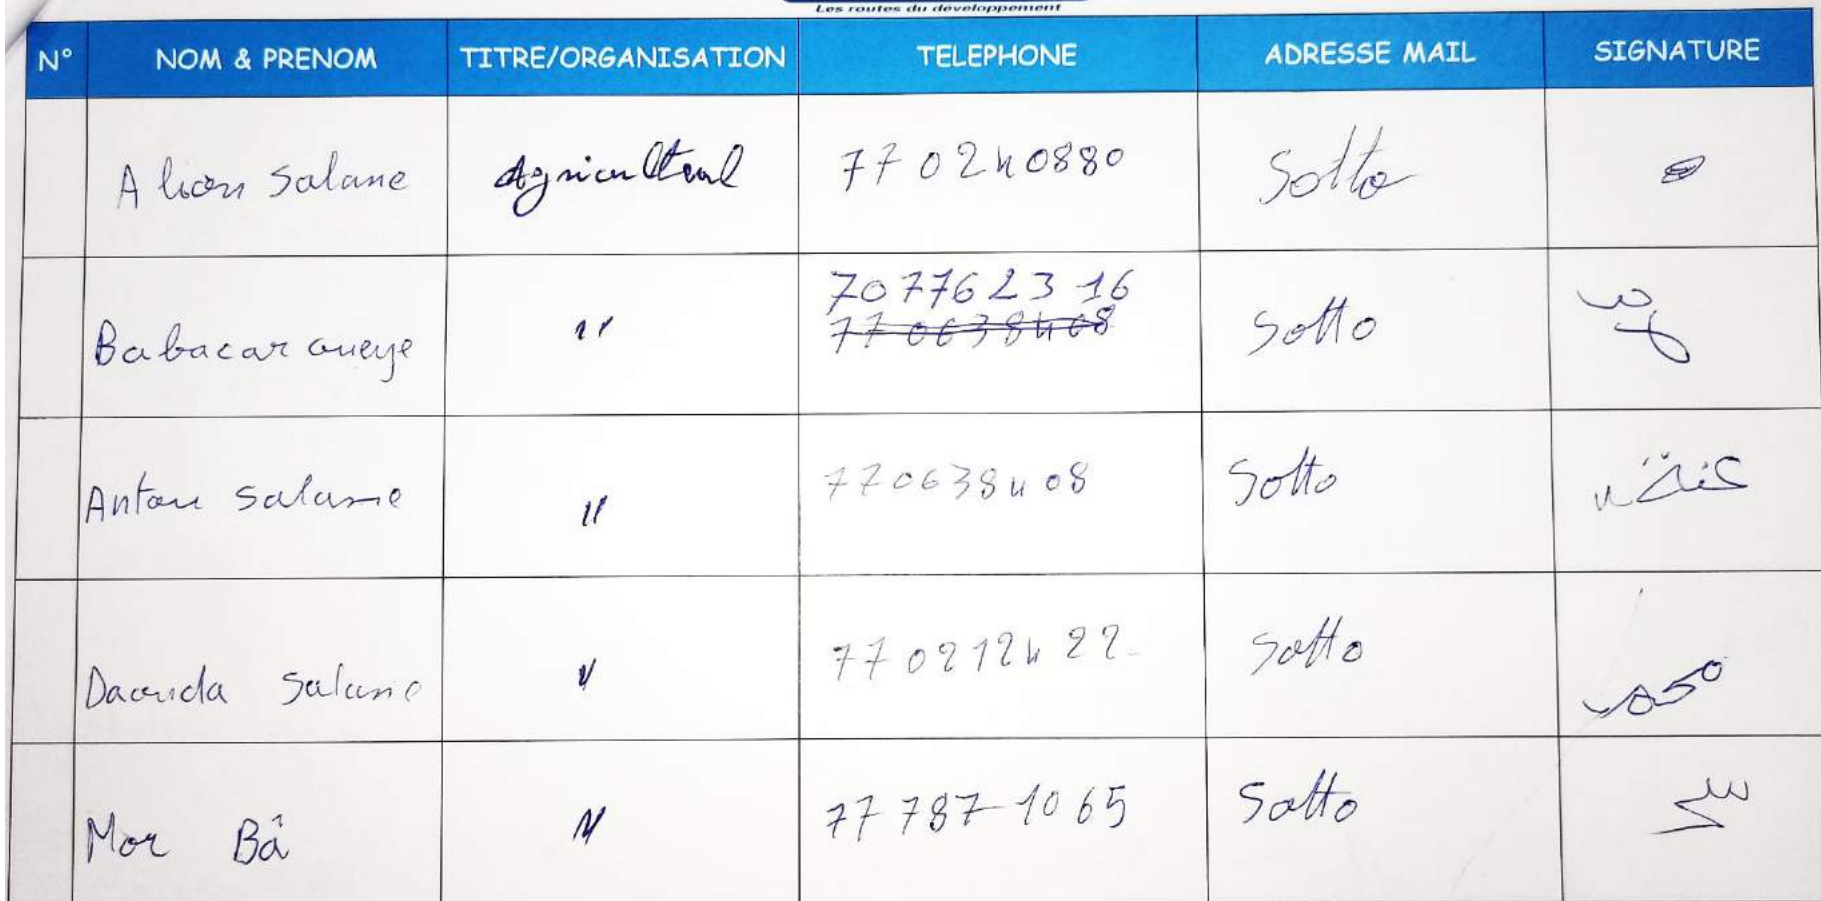 Les routes du développement
N° NOM & PRENOM TITRE/ORGANISATION TELEPHONE ADRESSE MAIL SIGNATURE
Aliou Salane Agriculteur 770240880 Sotto
7077623 16
Babacar Gueye " 770638408 Sotto
Antou Salane " 770638408 Sotto
Daouda Salane " 770212422 Sotto
Mor Bâ " 77 787 10 65 Sotto